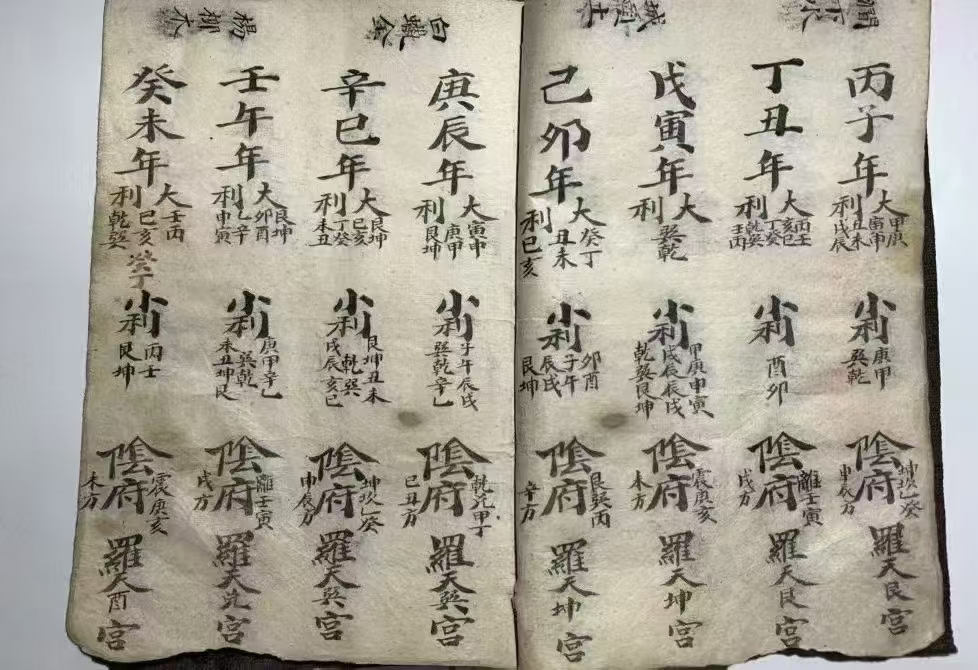 丙子年
大利
甲庚
寅申
丑未
戌辰
小利
庚甲
巽乾
陰府
坤坎乙癸
申辰方
羅天艮宮
城頭土
丁丑年
大利
丙壬
亥巳
丁癸
乾巽
壬丙
小利
酉卯
陰府
離壬寅
戌方
羅天艮宮
戊寅年
大利
巽乾
小利
甲庚申寅
戌辰辰戌
乾巽艮坤
陰府
震庚亥
未方
羅天坤宮
己卯年
大利
癸丁
丑未
巳亥
小利
卯酉
子午
辰戌
艮坤
陰府
艮巽丙
辛方
羅天坤宮
白蠟金
庚辰年
大利
寅申
庚甲
艮坤
小利
子午辰戌
巽乾辛乙
陰府
乾兌甲丁
巳丑方
羅天巽宮
辛巳年
大利
艮坤
巳亥
丁癸
未丑
小利
艮坤丑未
乾巽
戌辰亥巳
陰府
坤坎乙癸
申辰方
羅天巽宮
楊柳木
壬午年
大利
艮坤
卯酉
乙辛
申寅
小利
庚甲辛乙
巽乾
未丑坤艮
陰府
離壬寅
戌方
羅天兌宮
癸未年
大利
壬丙
巳亥
乾巽
癸丁
小利
丙壬
艮坤
陰府
震庚亥
未方
羅天酉宮